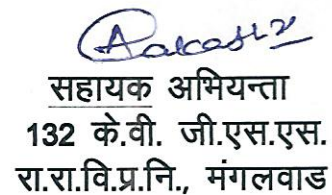 सहायक अभियन्ता
132 के.वी. जी.एस.एस.
रा.रा.वि.प्र.नि., मंगलवाड